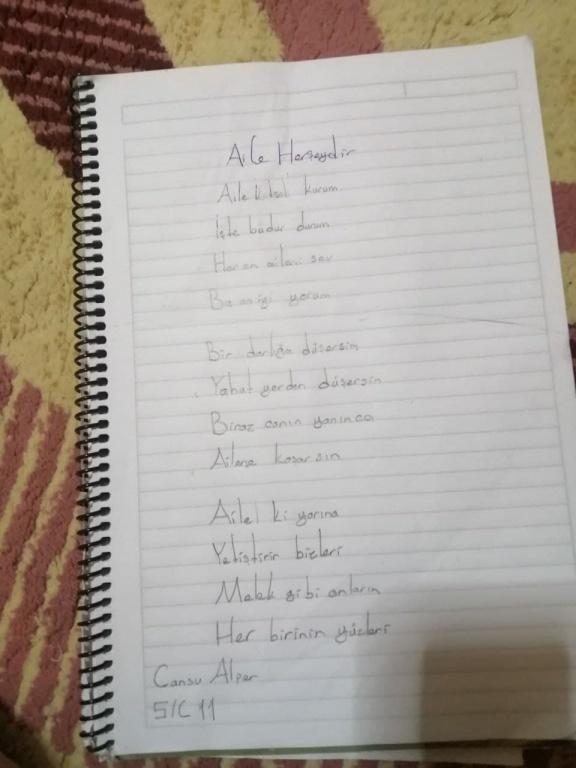 Aile Herşeydir
Aile kutsal kurum
İşte budur durum
Her an aileni sev
Bu en iyi yorum
Bir darlığa düşersin
Yahut yerden düşersin
Biraz canın yanınca
Ailene koşarsın
Ailel ki yarına
Yetiştirir bizleri
Melek gibi onların
Her birinin yüzleri
Cansu Alper
5/C 11